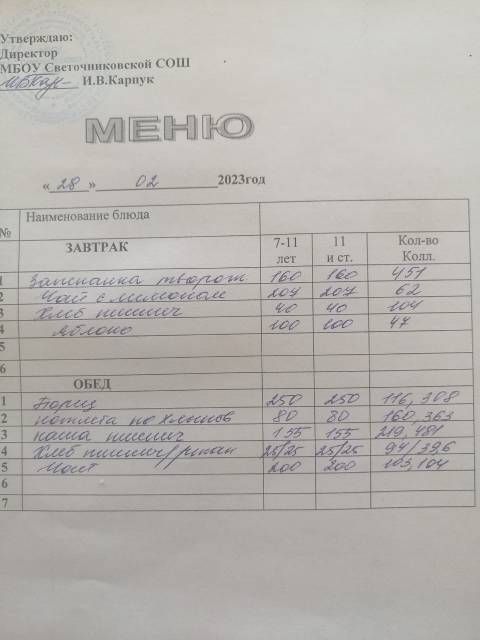 Утверждаю:
Директор
МБОУ Светочниковской СОШ
И.В.Карпук
МЕНЮ
«28» 02 2023год
№ Наименование блюда
ЗАВТРАК 7-11 лет 11 и ст. Кол-во Колл.
1 Запеканка творож 160 160 451
2 Чай с лимоном 207 207 62
3 Хлеб пшенич 40 40 104
4 Яблоко 100 100 47
5
6
ОБЕД
1 Борщ 250 250 116,308
2 котлета по хлынов 80 80 160,363
3 каша пшенич 155 155 219,481
4 Хлеб пшенич/ржан 25/25 25/25 94/396
5 200 200 103,104
6
7